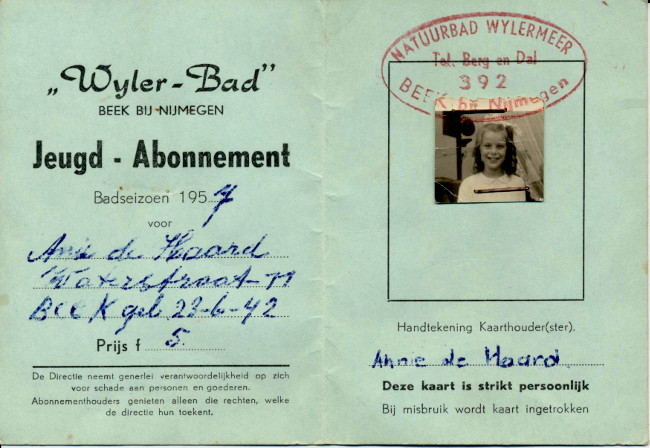 „Wyler-Bad”
BEEK BIJ NIJMEGEN
Jeugd - Abonnement
Badseizoen 1957
voor
Anie de Haard
Waterstraat 11
BEEK geb 22-6-42
Prijs f 5.
De Directie neemt generlei verantwoordelijkheid op zich
voor schade aan personen en goederen.
Abonnementhouders genieten alleen die rechten, welke
de directie hun toekent.
NATUURBAD WYLERMEER
Tel. Berg en Dal
392
BEEK bij Nijmegen
Handtekening Kaarthouder(ster).
Annie de Haard
Deze kaart is strikt persoonlijk
Bij misbruik wordt kaart ingetrokken